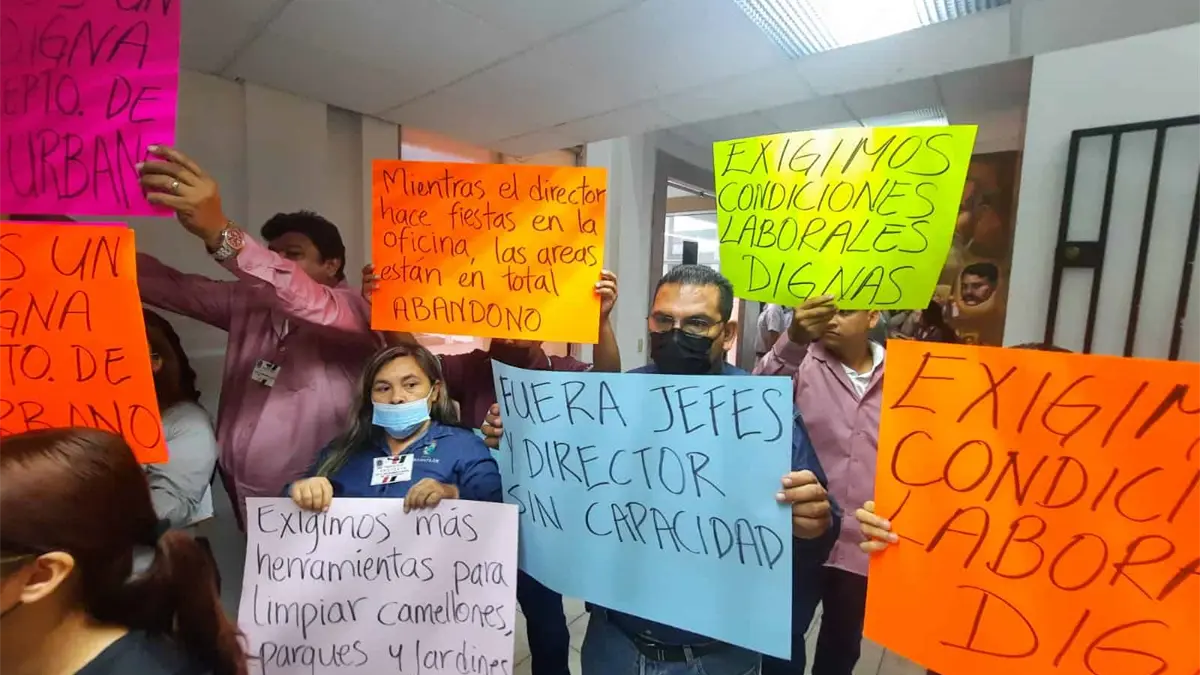 S UN
DIGNA
EPTO. DE
URBANO
S UN
GNA
TO. DE
RBANO
Mientras el director
hace fiestas en la
oficina, las areas
están en total
ABANDONO
EXIGIMOS
CONDICIONES
LABORALES
DIGNAS
FUERA JEFES
Y DIRECTOR
SIN CAPACIDAD
Exigimos más
herramientas para
limpiar camellones,
parques y Jardines
EXIGIM
CONDICI
LABORA
DIG